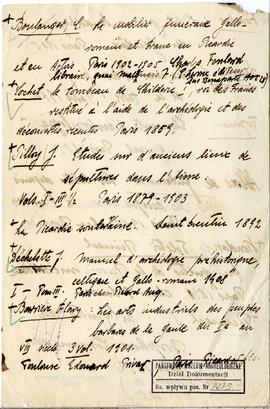 + Boulanger, C. Le mobilier funéraire gallo-
romain et franc en Picardie
et en Artois. Paris 1902-1905 Charles Foulard
libraire, quai Malaquais 7
Cochet, le tombeau de Childéric I, roi des Francs
restitué à l'aide de l'archéologie et des
découvertes récentes Paris 1859.
+ Pilloy J. Etudes sur d'anciens lieux de
sépultures dans l'Aisne.
Vols. I-III/2 Paris 1879-1903
+ La Picardie souterraine. Saint Quentin 1892
+ Déchelette J. Manuel d'archéologie préhistorique
celtique et gallo-romaine 1908
I – Tom III. Picard Aug.
+ Barrière Flavy: Les arts industriels des peuples
barbares de la Gaule du V au
VIII siècle. 3 Vol. 1901.
Toulouse Edouard Privat Paris Picard
PAŃSTWOWE MUZEUM ARCHEOLOGICZNE
Dział Dokumentacji
Ks. wpływu poz. Nr 7279